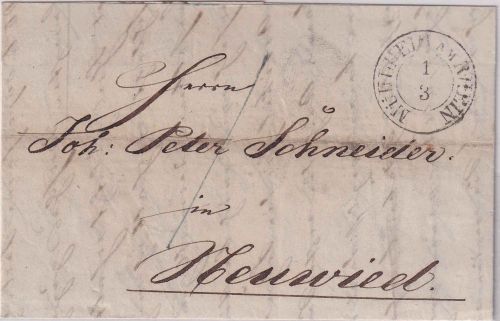 MÜLHEIM AM RHEIN
1
3
Herrn
Joh: Peter Schneider.
in
Neuwied.